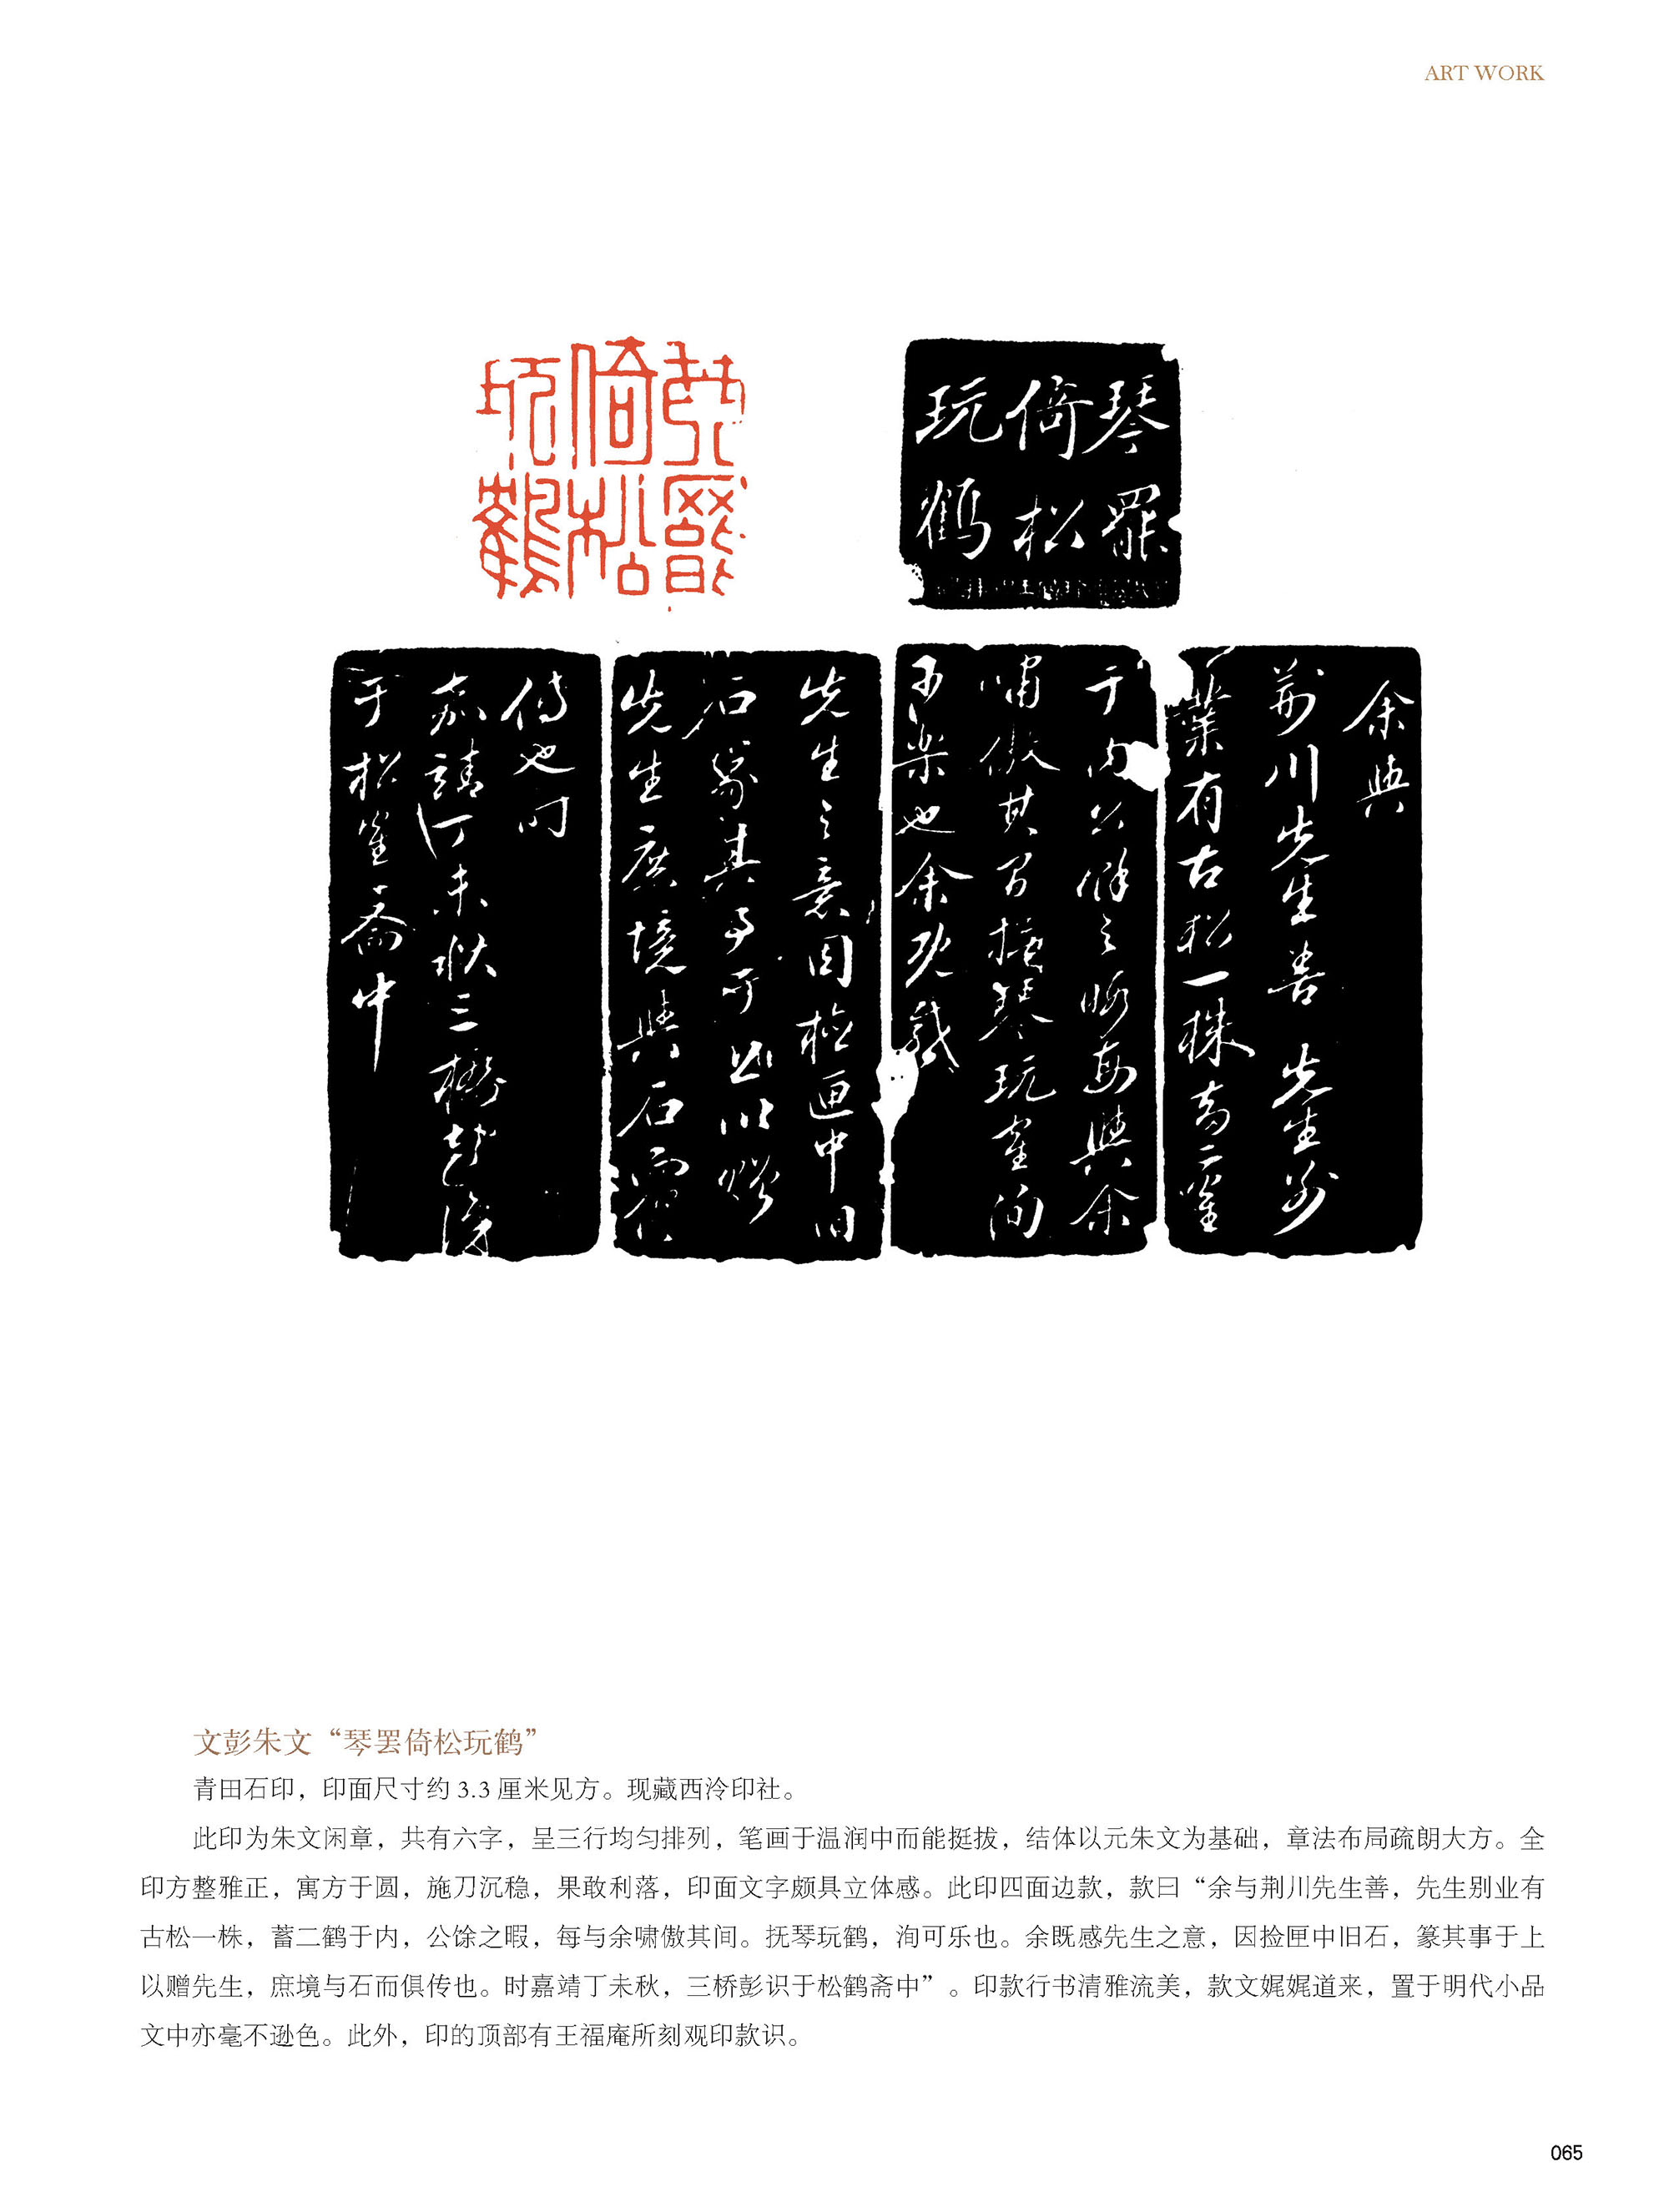 ART WORK
琴罷
倚松
玩鶴
琴罷
倚松
玩鶴
余與
荆川先生善 先生别
業有古松一株畜二崔
于内公餘之暇每與余
嘯傲其間撫琴玩崔洵
可樂也余既感
先生之意因檢匣中旧
石篆其事于上以贈
先生庶境與石而俱
傳也时
嘉靖丁未秋三橋彭識
于松崔斋中
文彭朱文“琴罢倚松玩鹤”
青田石印，印面尺寸约 3.3 厘米见方。现藏西泠印社。
此印为朱文闲章，共有六字，呈三行均匀排列，笔画于温润中而能挺拔，结体以元朱文为基础，章法布局疏朗大方。全
印方整雅正，寓方于圆，施刀沉稳，果敢利落，印面文字颇具立体感。此印四面边款，款曰“余与荆川先生善，先生别业有
古松一株，蓄二鹤于内，公馀之暇，每与余啸傲其间。抚琴玩鹤，洵可乐也。余既感先生之意，因捡匣中旧石，篆其事于上
以赠先生，庶境与石而俱传也。时嘉靖丁未秋，三桥彭识于松鹤斋中”。印款行书清雅流美，款文娓娓道来，置于明代小品
文中亦毫不逊色。此外，印的顶部有王福庵所刻观印款识。
065